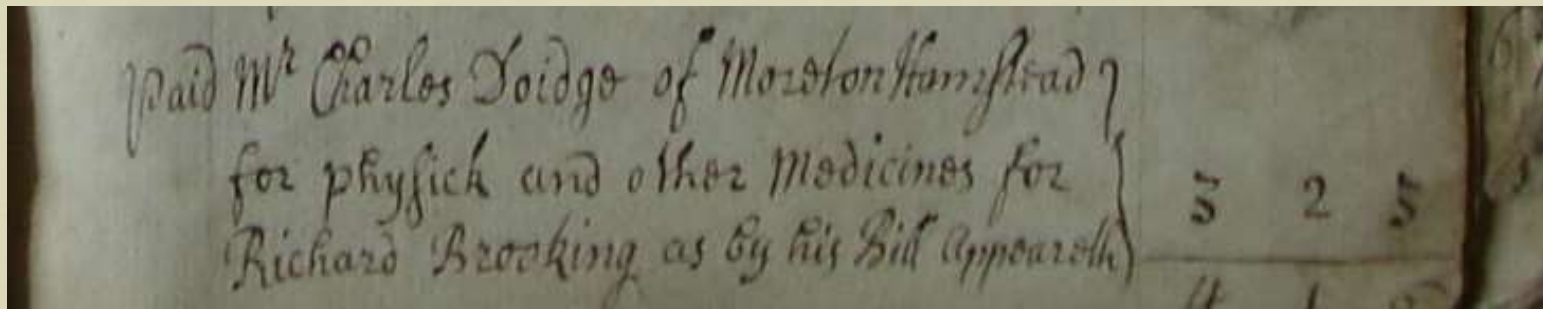 Paid Mr Charles Doidge of Moreton Hampstead
for physick and other Medicines for
Richard Brooking as by his Bill Appeareth 3 2 3